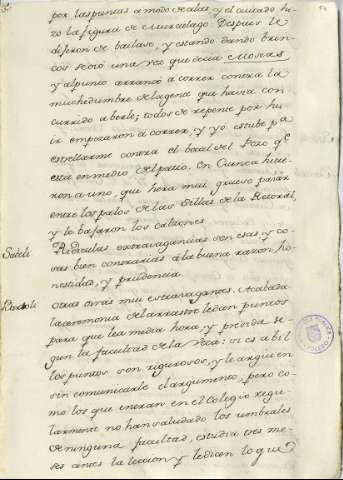 por las puntas a modo de alas, y el cuitado hi-
zo la figura de Murcielago. Despues le
dijeron de bailase, y estando dando brin-
cos se oió una voz que decia Moscas
y al punto arrancó a correr contra la
muchedumbre de la gente que havia con-
currido a berle; todos de repente por hu-
ir empezaron a correr, y yo estube pa
estrellarme contra el bocal del Pozo qe
está en medio del patio. En Cuenca hicie-
ron a uno, que hera mui grueso pasar
entre los palos de las Sillas de la Rectoral,
y le bajaron los calzones
Ridiculas extravagancias son esas, y co-
sas bien contrarias á la buena razon ho-
nestidad, y prudencia.
Otras otras mui extravagantes. Acabada
la ceremonia del arrastre le dan puntos
para que lea media hora, y presida se-
gun la facultad de la Beca: si es abil
los puntos son rigurosos, y le arguien
sin comunicarle el argumento, pero co-
mo los que entran en el Colegio regu-
larmente no han saludado los umbrales
de ninguna facultad, estudia tres me-
ses antes la leccion y le dan lo que